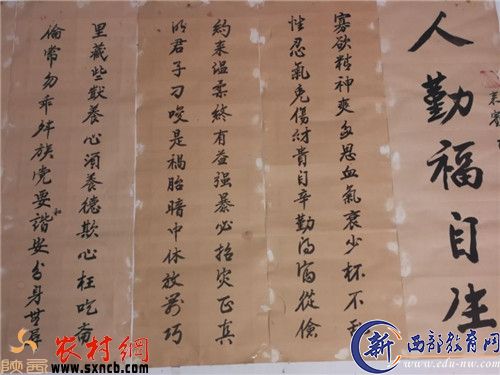 人勤福自生
寡欲精神爽多思血氣衰少杯不亂
性忍氣免傷財貴自辛勤得富從儉
約來溫柔終有益强暴必招災正真
的君子刁唆是禍胎暗中休放箭巧
里藏些獃養心須養德欺心枉吃齋
倫常勿乖舛族党要諧和安分身
陕西
农村網
www.sxncb.com
新
西部教育网
www.edu-nw.com